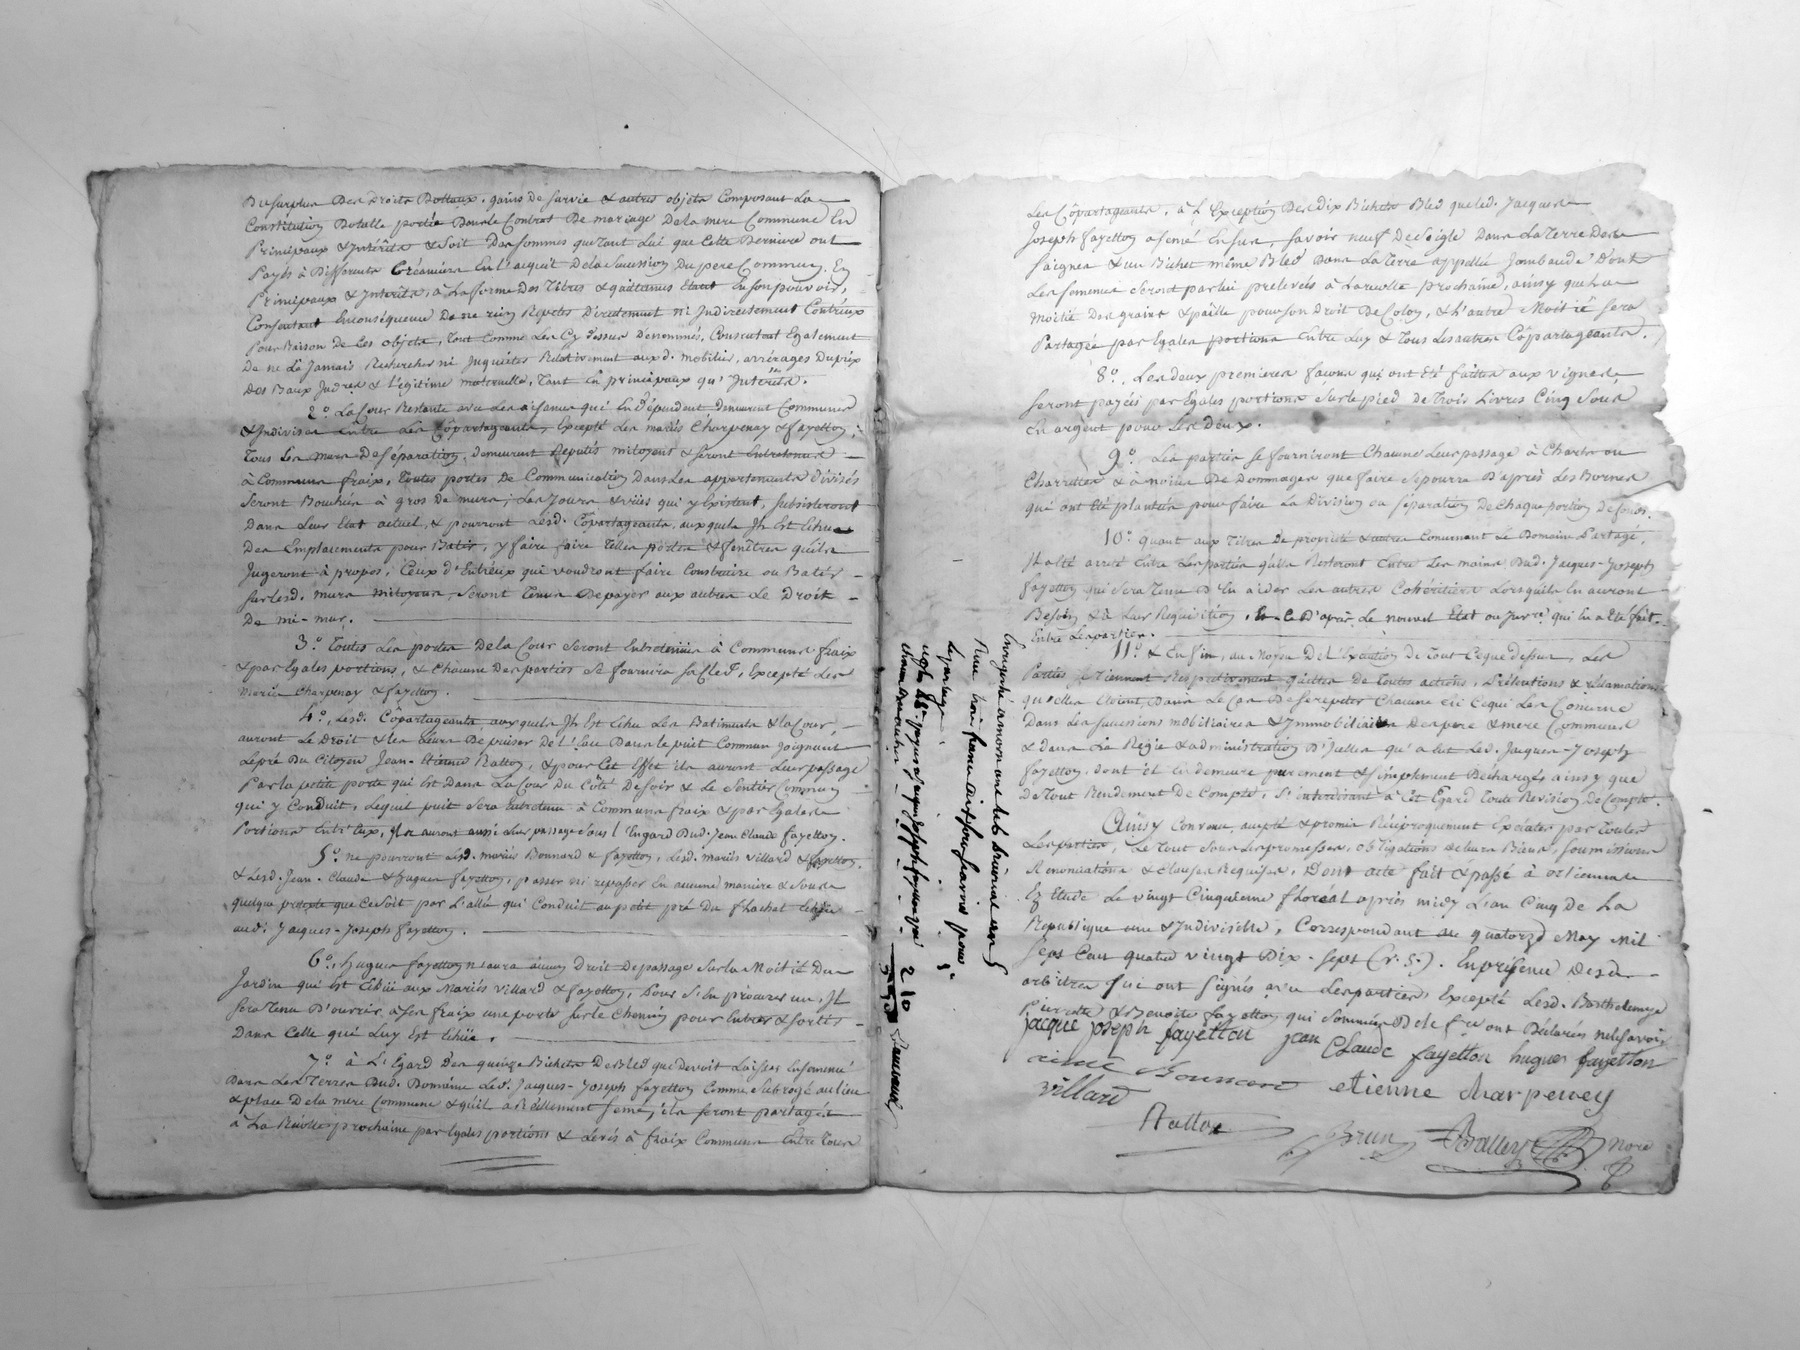 Du surplus Des Droits Dottaux, gains de survie & autres objets Composant La
Constitution Dotalle portée Dans le Contrat De mariage De la mere Commune En
Principaux & Intérêts & Soit Des sommes que tant Lui que Cette Derniere ont
Payés à Differents Créanciers En l'acquit De la Succession Du pere Commun, En
Principaux & Interêts, à La forme Des Titres & quittances Etant En son pouvoir,
Consentant En conséquence De ne rien Repeter Directement ni Indirectement Contr'eux
Pour Raison De Ces objets, Tout Comme Les Cy dessus Dénommés, Consentent Egalement
De ne Le Jamais Rechercher ni Inquiéter Relativement aux d. mobilier, arrérages Du prix
Des Baux Judres & Légitime maternelle, Tant En principaux qu'Intérêts.
2.° La Cour Restante avec Les aisances qui En Dépendent Demeurent Communes
& Indivises Entre Les Côpartageants, Excepté Les mariés Charpenay & fayetton;
Tous Les murs De Séparation, demeurent Réputés mitoyens & Seront Entretenus
à Communs fraix, Toutes portes De Communication Dans Les appartements divisés
Seront Bouchées à gros de murs; Les Jours & vües qui y Existent, Subsisteront
Dans Leur Etat actuel, & pourront Lesd. Côpartageants, auxquels Il Est Echu
Des Emplacements pour Batir, y faire faire Telles portes & fenêtres qu'ils
Jugeront à propos, Ceux d'Entr'eux qui voudront faire Construire ou Batir
Sur Lesd. murs mitoyens, Seront Tenus De payer aux autres Le Droit
De mi-mur.
3.° Toutes Les portes De la Cour Seront Entretenües à Communs fraix
& par Egales portions, & Chacune Des parties Se fournira Sa Clef, Excepté Les
Mariés Charpenay & fayetton.
4.°, Lesd. Côpartageants auxquels Il Est Echu Les Batiments & la Cour,
auront Le Droit & Les Leurs De puiser De l'Eau Dans le puit Commun Joignant
Le pré Du Citoyen Jean-Etienne Ratton, & pour Cet Effet ils auront Leur passage
Par la petite porte qui Est Dans La Cour Du Côté De soir & Le Sentier Commun
qui y Conduit, Lequel puit Sera Entretenu à Communs fraix & par Egales
Portions Entr'Eux, Ils auront aussi Leur passage Sous l'Engard Dud. Jean Claude fayetton.
5.° ne pourront Lesd. mariés Bonnard & fayetton, Lesd. mariés Villard & fayetton
& Lesd. Jean-Claude & Hugues fayetton, passer ni repasser En aucune manière & Sous
quelque pretexte que Ce Soit par L'allée qui Conduit au petit pré Du flachat Echüe
aud. Jacques-Joseph fayetton.
6.°, Hugues fayetton n'aura aucun Droit De passage Sur La Moitié Du
Jardin qui Est Echüe aux Mariés Villard & fayetton, Pour S'En procurer un, Il
Sera Tenu D'ouvrir à Ses fraix une porte Sur le Chemin pour Entrer & sortir
Dans Celle qui Luy Est Echüe.
7.° à L'Egard Des quinze Bichets De Bled que Devoit Laisser Ensemencé
Dans Les Terres Dud. Domaine Led. Jacques-Joseph fayetton Comme Subrogé au lieu
& place De la mere Commune & qu'il a Réellement Semé, ils Seront partagés
à La Récolte prochaine par Egales portions & Levés à fraix Communs Entre Tous
Enregistré à
une
Reçu trois francs dix sous
pour
Le partage
Jacques Joseph fayetton
2 10
Les Côpartageants, à L'Exception Des Dix Bichets Bled que Led. Jacques
Joseph fayetton a Semé En Sus, Savoir neuf De Seigle Dans La Terre Des
Saignes & un Bichet même Bled Dans La Terre appellée Jambaude D'ont
Les Semences Seront par lui prelevés à La récolte prochaine, ainsy que La
Moitié Des grains & paille pour Son Droit De Colon, & L'autre Moitié Sera
Partagée par Egales portions Entre Luy & Tous Les autres Côpartageants.
8.°, Les deux premieres façons qui ont Eté faites aux vignes
Seront payées par Egales portions Sur le pied de Trois Livres Cinq Sous
En argent pour Les Deux.
9.° Les parties Se fourniront Chacune Leur passage à Chars ou
Charrettes & à moins De Dommages que faire Se pourra D'après Les Bornes
qui ont Eté plantées pour faire La Division ou Séparation De Chaque portion De fonds.
10.° quant aux Titres De propriété & autres Concernant Le Domaine Partagé,
Il a Eté arrêté Entre Les parties qu'ils Resteront Entre Les mains Dud. Jacques-Joseph
fayetton qui Sera Tenu D'En aider Les autres Cohéritiers Lorsqu'ils En auront
Besoin & à Leur Requisition, & ce D'après Le nouvel Etat qui En a Eté fait
Entre Les parties.
11.° & Enfin, au Moyen De L'Exécution De Tout Ce que Dessus, Les
Parties Se Tiennent Respectivement quittes De Toutes actions, Pétitions & réclamations
qu'elles Etoient Dans Le Cas De Se repeter Chacune En Ce qui Les Concerne
Dans Les Successions mobiliaires & Immobiliaires Des pere & mere Communs
& dans La Régie & administration D'Icelles qu'a Eut Led. Jacques-Joseph
fayetton, dont il En demeure purement & Simplement Déchargé ainsy que
De Tout Rendement De Compte, S'interdisant à Cet Egard Toute Revision De Compte.
Ainsy Convenu, accepté & promis Réciproquement Exécuter par Toutes
Les parties, Le Tout Sous Les promesses, obligations De Leurs Biens, Soumissions
Renonciations & Clauses Requises, Dont acte fait & passé à
En Etude Le vingt Cinquieme floréal après midy L'an Cinq De La
Republique une & Indivisible, Correspondant au quatorze May Mil
Sept Cent quatre vingt Dix-Sept (v. S.). En présence Desd.
arbitres qui ont Signés avec Les parties, Excepté Lesd. Barthelemye
Pierrette & Benoite fayetton qui Sommées De le f.re ont Déclarés ne Savoir
jacque joseph fayetton jean Claude fayetton hugues fayetton
aimé Bonnard etienne charpeney
villard
Ratton Brun Balley nore